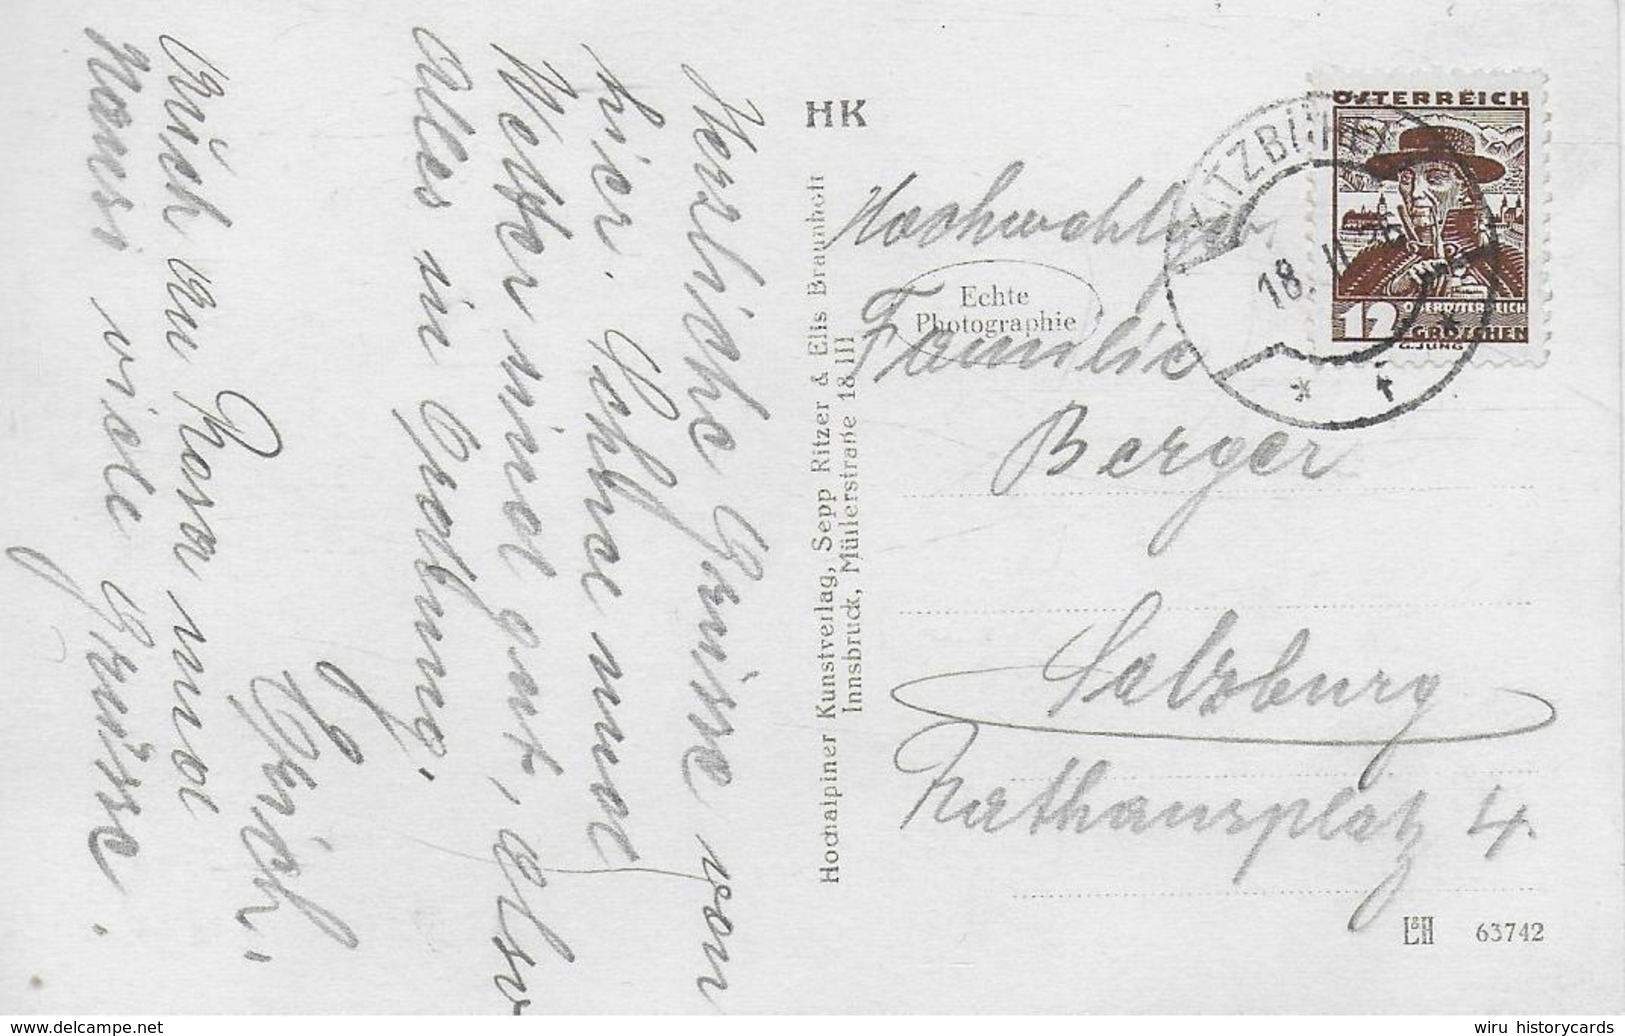 Herzliche Grüsse von
hier. Schnee und
Wetter sind gut, also
alles in Ordnung.
Erich.
Auch an Rosa und
viele Grüsse.
HK
Hochalpiner Kunstverlag, Sepp Ritzer & Elis Braunholt
Innsbruck, Müllerstraße 18 III
Hochwohlgeb.
Echte
Photographie
Familie
Berger
Salzburg
Rathausplatz 4.
KITZBÜHEL
18. II.
ÖSTERREICH
12
OBERÖSTERREICH
GROSCHEN
G. JUNG
L&H 63742
wiru historycards